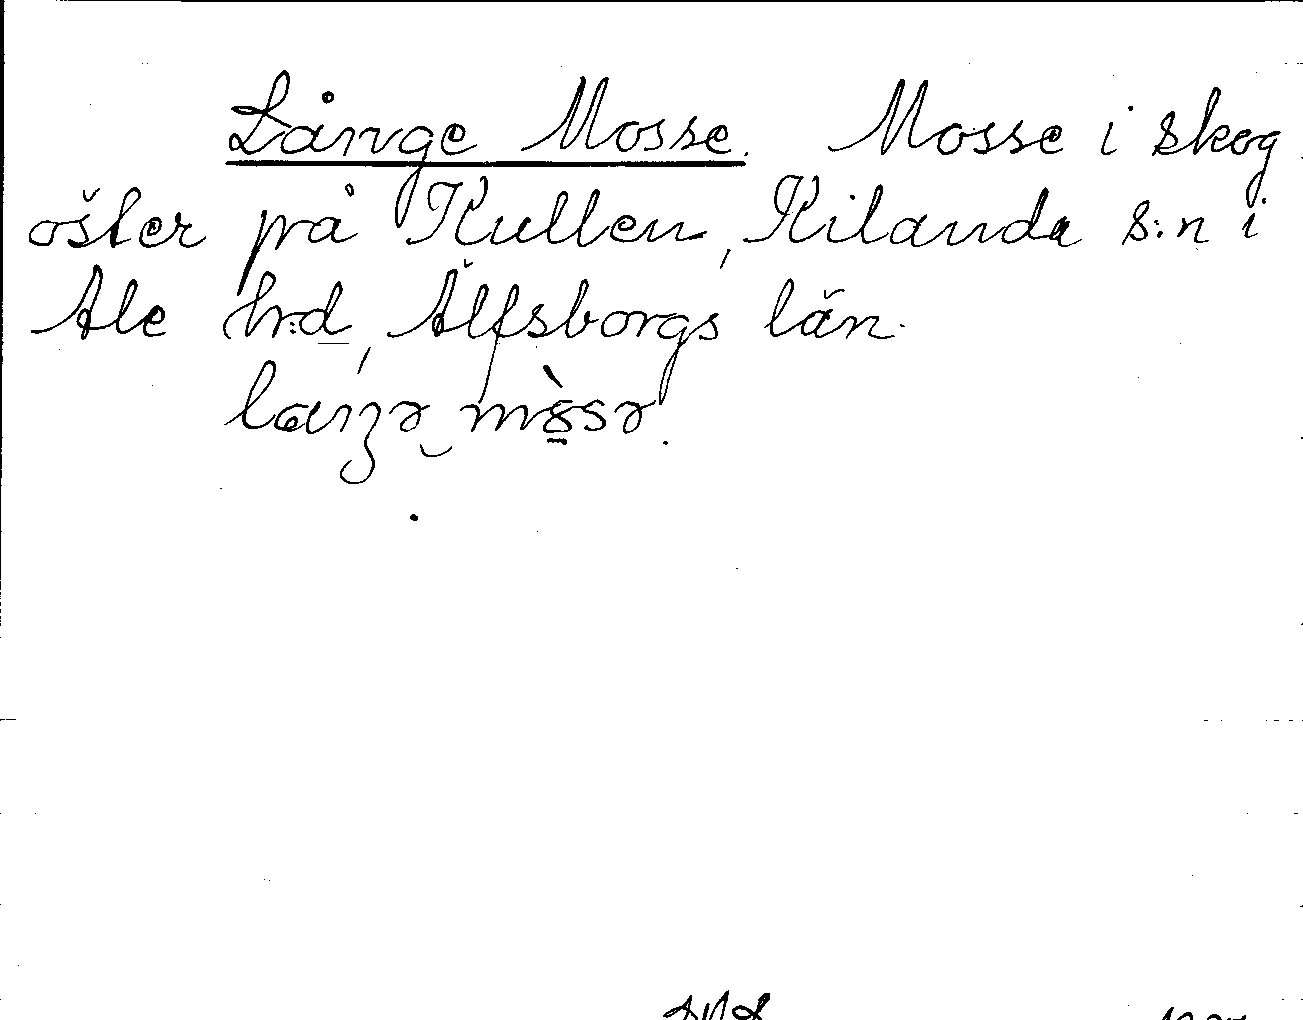 Långe Mosse. Mosse i skog
öster på Kullen, Kilanda s:n i
Ale h:d, Älfsborgs län.